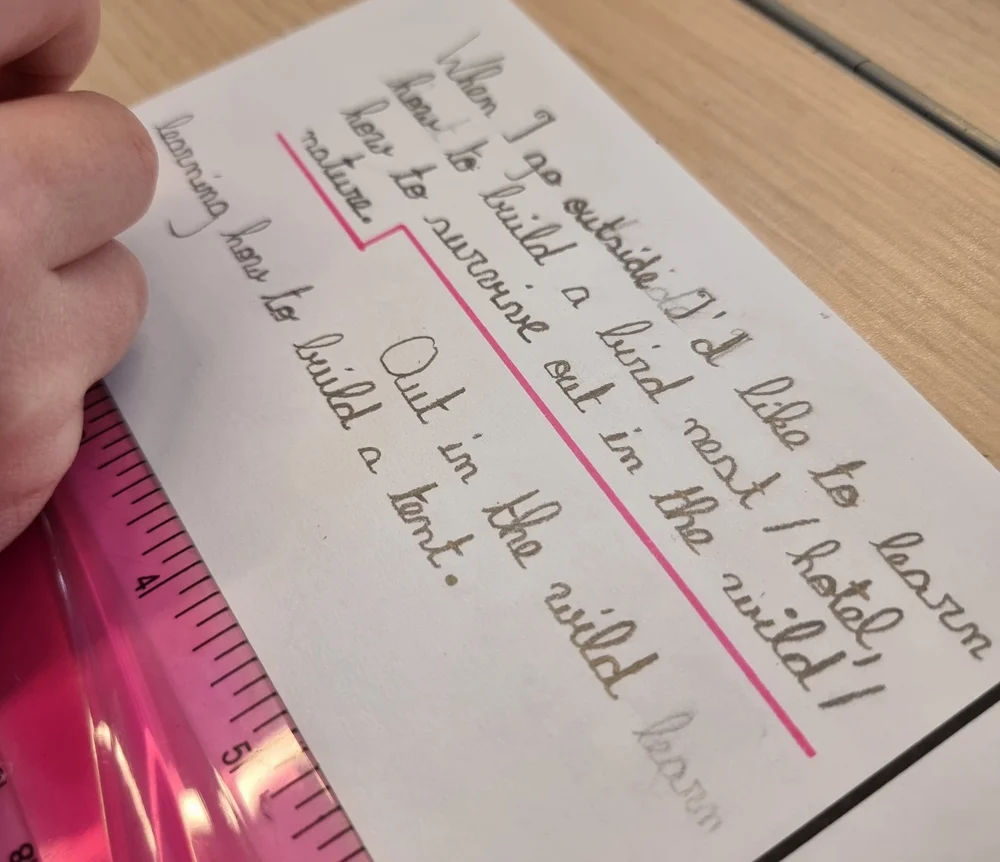 When I go outside I'd like to learn
how to build a bird nest / hotel,
how to survive out in the wild /
nature.
Out in the wild learn
learning how to build a tent.
4
5
8